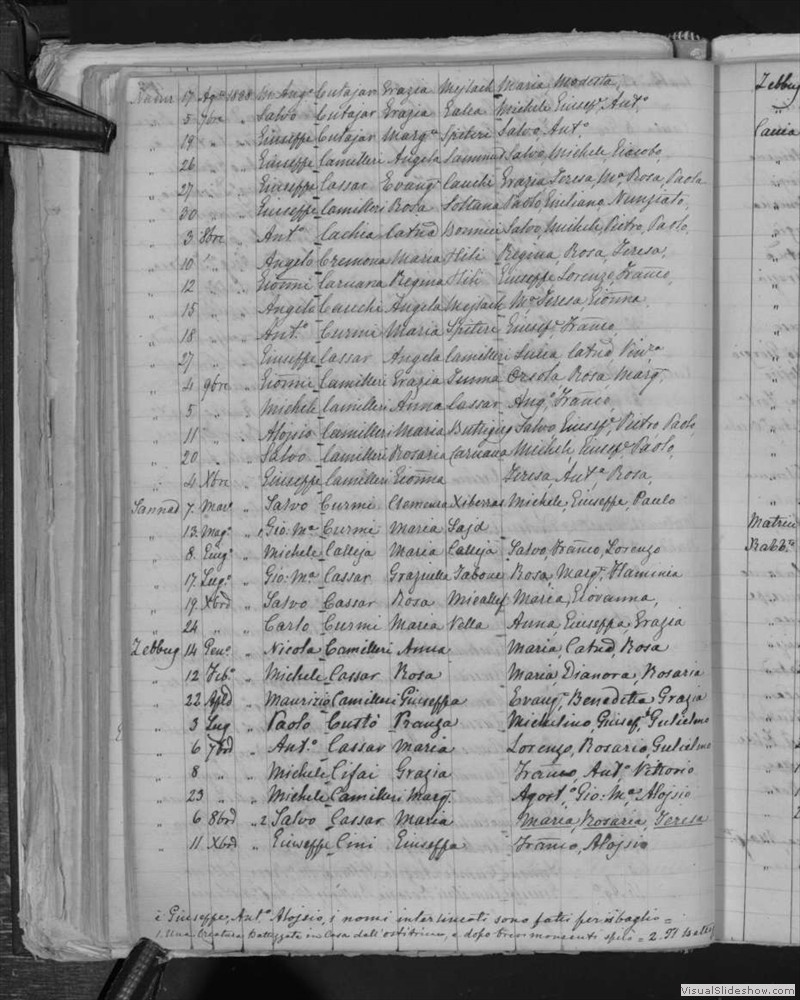 Nadur 17 Agto 1828 M. Ango Cutajar Grazia Mejlach Maria Modesta,
" 5 7bre " Salvo Cutajar Grazia Galea Michele Giusepe, Anto
" 19 " " Giuseppe Cutajar Margta Spiteri Salvo, Anto,
" 26 " " Giuseppe Camilleri Angela Sammut Salvo, Michele, Giacobo,
" 27 " " Giuseppe Cassar Evange Cauchi Grazia, Teresa, Ma Rosa, Paola
" 30 " " Giuseppe Camilleri Rosa Soltana Paolo, Emiliano, Nunziato,
" 3 8bre " Anto Cachia Catna Bonnici Salvo, Michele, Pietro, Paolo,
" 10 " " Angelo Cremona Maria Hili Regina, Rosa, Teresa,
" 12 " " Gionni Caruana Regina Hili Giuseppe, Lorenzo, Franco,
" 15 " " Angelo Cauchi Angela Mejlach Ma Teresa, Gionna,
" 18 " " Anto Curmi Maria Spiteri Giusepe, Franco,
" 27 " " Giuseppe Cassar Angela Camilleri Lucia, Catna, Vinza
" 4 9bre " Gionni Camilleri Grazia Orsola, Rosa, Marga,
" 5 " " Michele Camilleri Anna Cassar Ango, Franco,
" 11 " " Alojsio Camilleri Maria Buttigieg Salvo, Giusepe, Pietro Paolo,
" 20 " " Salvo Camilleri Rosaria Caruana Michele, Giusepe, Paolo,
" 4 Xbre " Giuseppe Camilleri Gionna Teresa, Anta, Rosa,
Sannad 7 Mar " Salvo Curmi Clemenza Xiberras Michele, Giuseppe, Paulo
" 13 Mago " 1 Gio: Ma Curmi Maria Sajd
" 8 Giugo " Michele Calleja Maria Calleja Salvo, Franco, Lorenzo
" 17 Lugo " Gio: Ma Cassar Graziulla Tabone Rosa, Marga, Flaminia
" 19 Xbre " Salvo Cassar Rosa Micallef Maria, Giovanna,
" 24 " " Carlo Curmi Maria Vella Anna, Giuseppa, Grazia
Zebbug 14 Geno " Nicola Camilleri Anna Maria, Catna, Rosa
" 12 Febo " Michele Cassar Rosa Maria, Dianora, Rosaria
" 22 Aple " Maurizio Camilleri Giuseppa Evange, Benedetta Grazia
" 3 Lug " Paolo Custò Franza Michelino, Giusepe, Gulielmo
" 6 7bre " Anto Cassar Maria Lorenzo, Rosario, Gulielmo
" 8 " " Michele Cifai Grazia Franco, Anto, Vittorio
" 23 " " Michele Camilleri Marga Agosto, Gio: Ma, Alojsio
" 6 8bre " 2 Salvo Cassar Maria Maria, Rosaria, Teresa
" 11 Xbre " Giuseppe Cini Giuseppa Franco, Alojsio
è Giuseppe, Anto Alojsio, i nomi interlineati sono fatti per isbaglio =
1. Una Creatura battezzata in Casa dall'ostitrice, e dopo
Zebbug
Matriu
Rabbto
VisualSlideshow.com